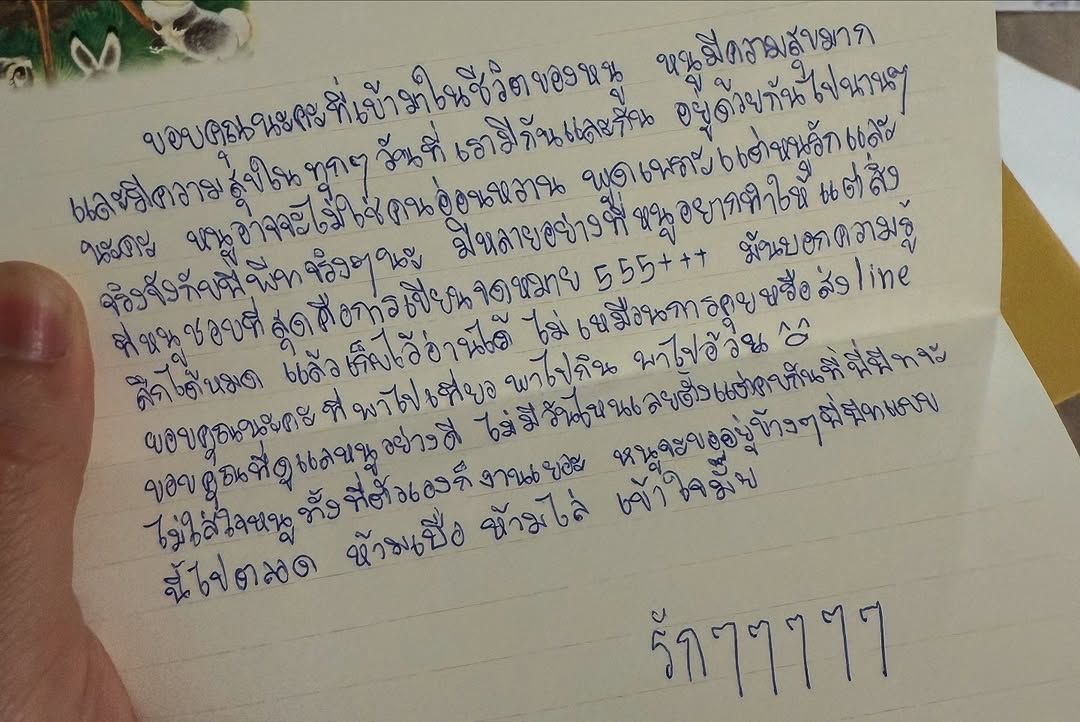 ขอบคุณนะคะที่เข้ามาในชีวิตของหนู หนูมีความสุขมาก
และมีความสุขในทุกๆ วันที่ เรามีกันและกัน อยู่ด้วยกันไปนานๆ
นะคะ หนูอาจจะไม่ใช่คนอ่อนหวาน พูดเพราะ แต่หนูรักและ
จริงจังกับพี่พีทจริงๆนะ มีหลายอย่างที่หนูอยากทำให้ แต่สิ่ง
ที่หนูชอบที่สุดคือการเขียนจดหมาย 555+++ มันบอกความรู้
สึกได้หมด แล้วเก็บไว้อ่านได้ ไม่เหมือนการคุยหรือส่ง line
ขอบคุณนะคะที่พาไปเที่ยว พาไปกิน พาไปอ้วน
ขอบคุณที่ดูแลหนูอย่างดี ไม่มีวันไหนเลยตั้งแต่คบกันที่พี่พีทจะ
ไม่ใส่ใจหนู ทั้งที่ตัวเองก็งานเยอะ หนูจะขออยู่ข้างๆพี่พีทแบบ
นี้ไปตลอด ห้ามเบื่อ ห้ามไล่ เข้าใจมั๊ย
รักๆๆๆๆๆ